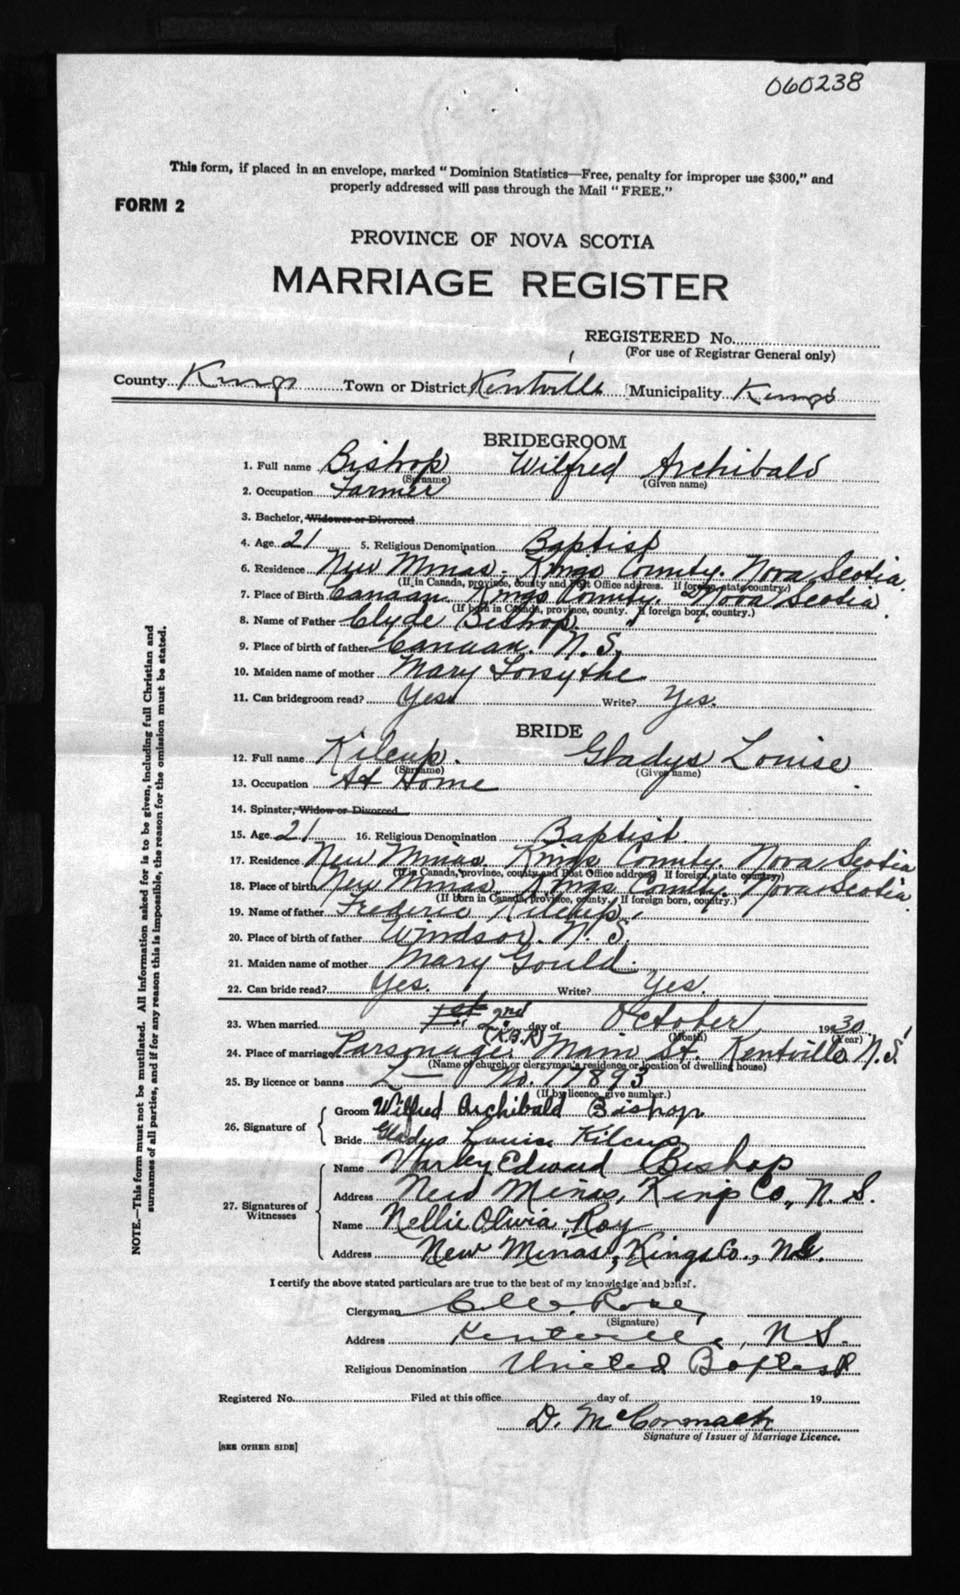 060238
This form, if placed in an envelope, marked "Dominion Statistics—Free, penalty for improper use $300," and
properly addressed will pass through the Mail "FREE."
FORM 2
PROVINCE OF NOVA SCOTIA
MARRIAGE REGISTER
REGISTERED No.
(For use of Registrar General only)
County Kings Town or District Kentville Municipality Kings
BRIDEGROOM
1. Full name Bishop Wilfred Archibald
(Surname) (Given name)
2. Occupation Farmer
3. Bachelor, Widower or Divorced
4. Age 21 5. Religious Denomination Baptist
6. Residence New Minas. Kings County. Nova Scotia.
(If in Canada, province, county and Post Office address. If foreign, state country.)
7. Place of Birth Canaan. Kings County. Nova Scotia.
(If born in Canada, province, county. If foreign born, country.)
8. Name of Father Clyde Bishop.
9. Place of birth of father Canaan. N.S.
10. Maiden name of mother Mary Forsythe
11. Can bridegroom read? Yes Write? Yes.
BRIDE
12. Full name Kilcup. Gladys Louise.
(Surname) (Given name)
13. Occupation At Home
14. Spinster, Widow or Divorced
15. Age 21 16. Religious Denomination Baptist.
17. Residence New Minas. Kings County. Nova Scotia
(If in Canada, province, county and Post Office address. If foreign, state country.)
18. Place of birth New Minas. Kings County. Nova Scotia.
(If born in Canada, province, county. If foreign born, country.)
19. Name of father Frederic Kilcup.
20. Place of birth of father Windsor. N.S.
21. Maiden name of mother Mary Gould.
22. Can bride read? Yes. Write? Yes.
23. When married 1st 2nd day of October 1930
(Month) (Year)
24. Place of marriage Parsonage. Main St. Kentville N.S.
(Name of church or clergyman's residence or location of dwelling house)
25. By licence or banns L— No. 17893
(If by licence, give number.)
26. Signature of
Groom Wilfred Archibald Bishop
Bride Gladys Louise Kilcup
27. Signatures of Witnesses
Name Edward Bishop
Address New Minas, Kings Co., N.S.
Name Nellie Olivia Roy
Address New Minas, Kings Co., N.S.
I certify the above stated particulars are true to the best of my knowledge and belief.
Clergyman Rose
(Signature)
Address Kentville, N.S.
Religious Denomination United Baptist
Registered No. Filed at this office day of 19
D. McCormack
Signature of Issuer of Marriage Licence.
[SEE OTHER SIDE]
NOTE.—This form must not be mutilated. All information asked for is to be given, including full Christian and
surnames of all parties, and if for any reason this is impossible, the reason for the omission must be stated.